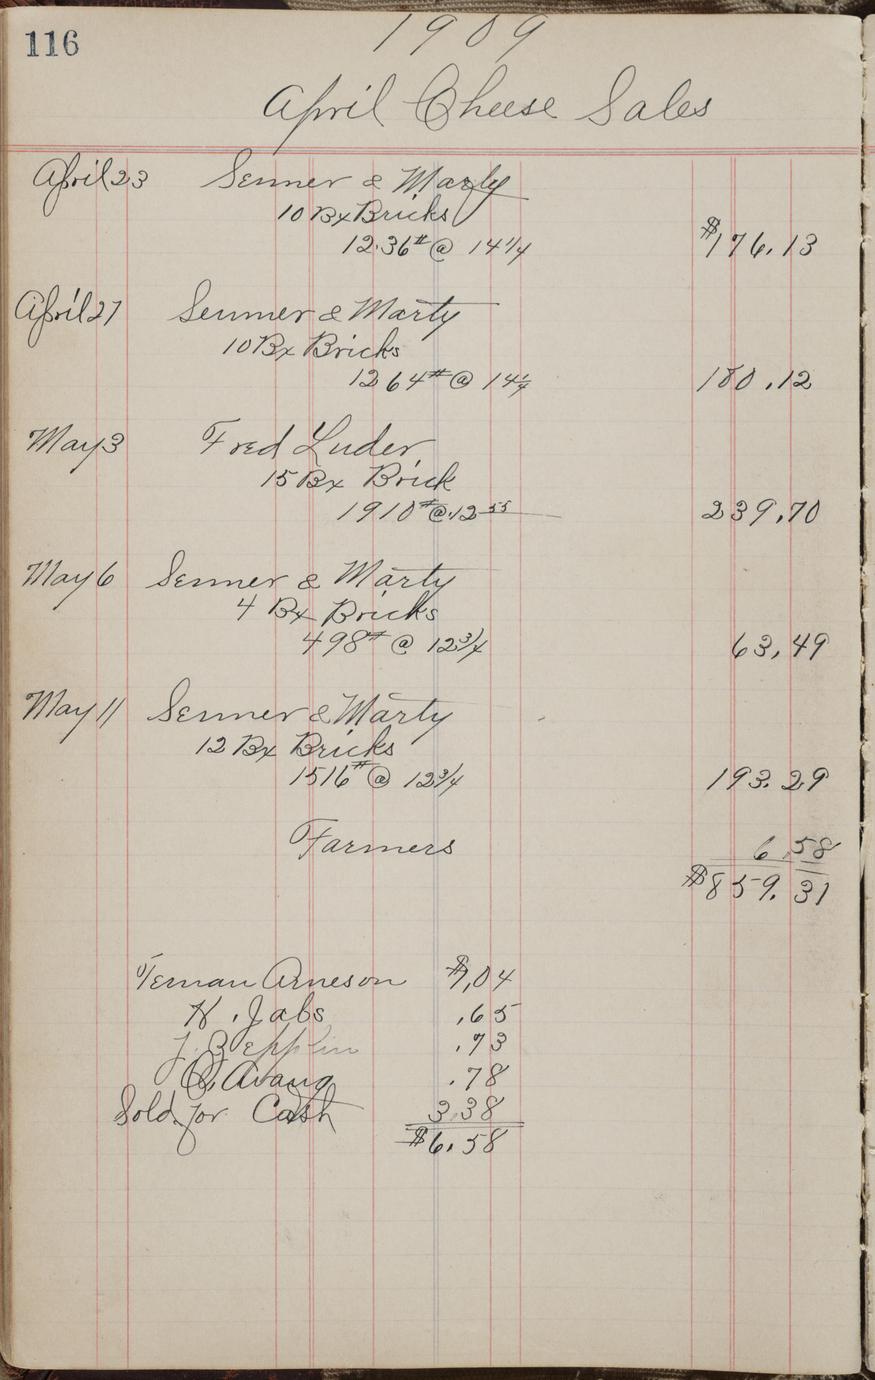 116
1909
April Cheese Sales
April 23 Senner & Marty
10 Bx Bricks
12.36# @ 14 1/4 $176.13
April 27 Senner & Marty
10 Bx Bricks
1264# @ 14 1/4 180.12
May 3 Fred Luder
15 Bx Brick
1910# @ .12 55 239.70
May 6 Senner & Marty
4 Bx Bricks
498# @ 12 3/4 63.49
May 11 Senner & Marty
12 Bx Bricks
1516# @ 12 3/4 193.29
Farmers 6.58
$859.31
Arneson $1.04
H. Jabs .65
J. Zepplin .73
.78
Sold for Cash 3.38
$6.58